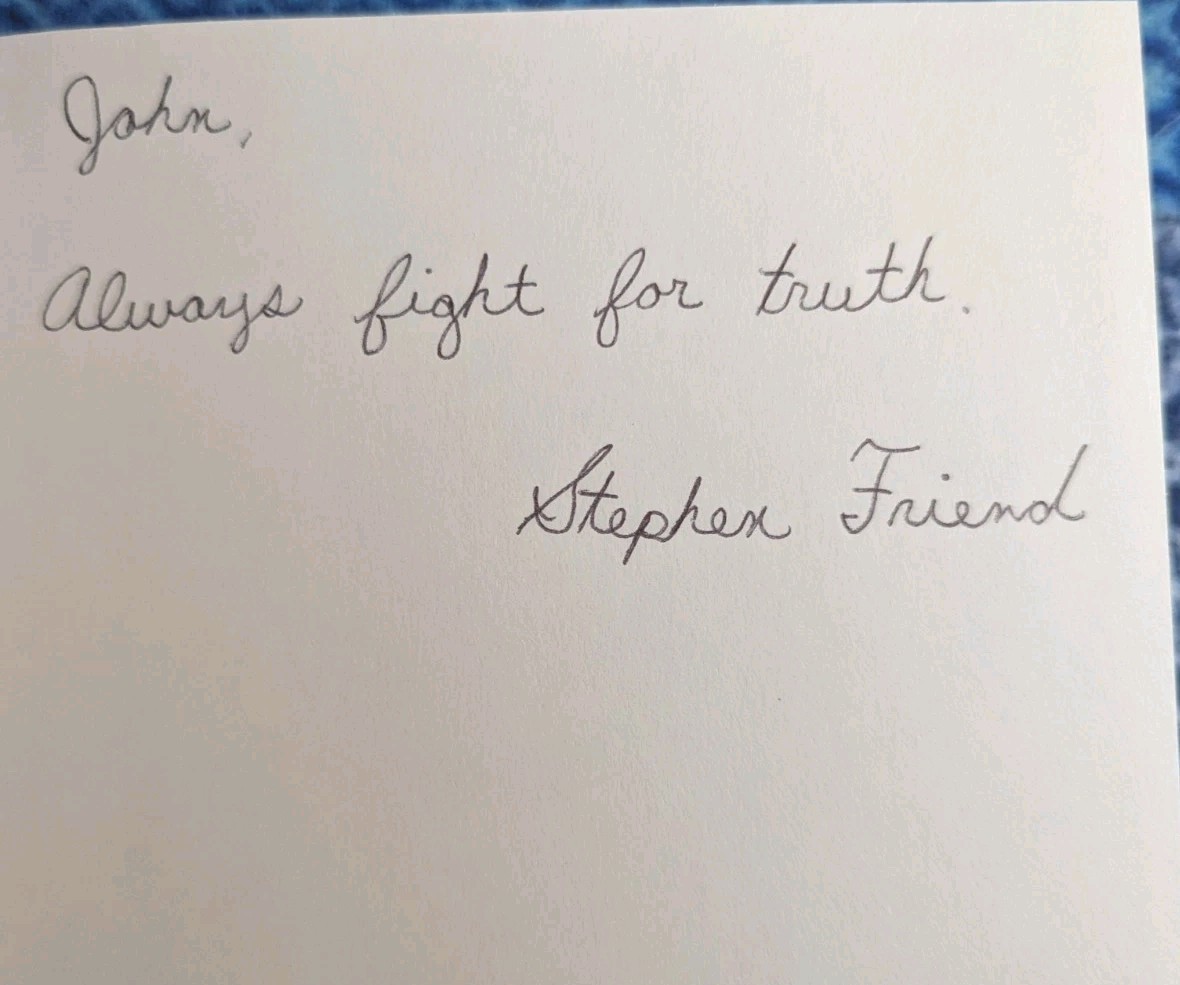 John,
Always fight for truth.
Stephen Friend